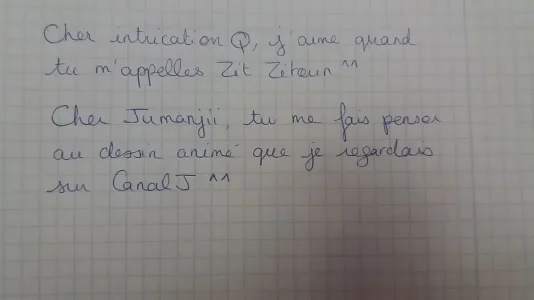 Cher intrication Q, j'aime quand
tu m'appelles Zit Zitoun ^^
Cher Jumanjii, tu me fais penser
au dessin animé que je regardais
sur Canal J ^^